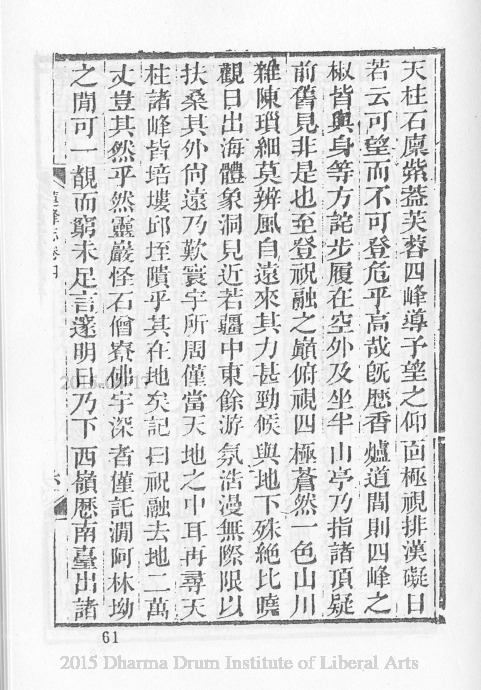 天柱石廩紫蓋芙蓉四峰導予望之仰面極視排漢礙日
若云可望而不可登危乎高哉旣歷香爐道間則四峰之
椒皆與身等方詫步履在空外及坐半山亭乃指諸頂疑
前舊見非是也至登祝融之巔俯視四極蒼然一色山川
雜陳瑣細莫辨風自遠來其力甚勁候與地下殊絶比曉
觀日出海體象洞見近若疆中東餘游氛浩漫無際限以
扶桑其外尙遠乃歎寰宇所周僅當天地之中耳再尋天
柱諸峰皆培塿邱垤隤乎其在地矣記曰祝融去地二萬
丈豈其然乎然靈巖怪石僧寮佛宇深者僅託澗阿林坳
之間可一覩而窮未足言邃明日乃下西嶺歷南臺出諸
志卷四
61
2015 Dharma Drum Institute of Liberal Arts